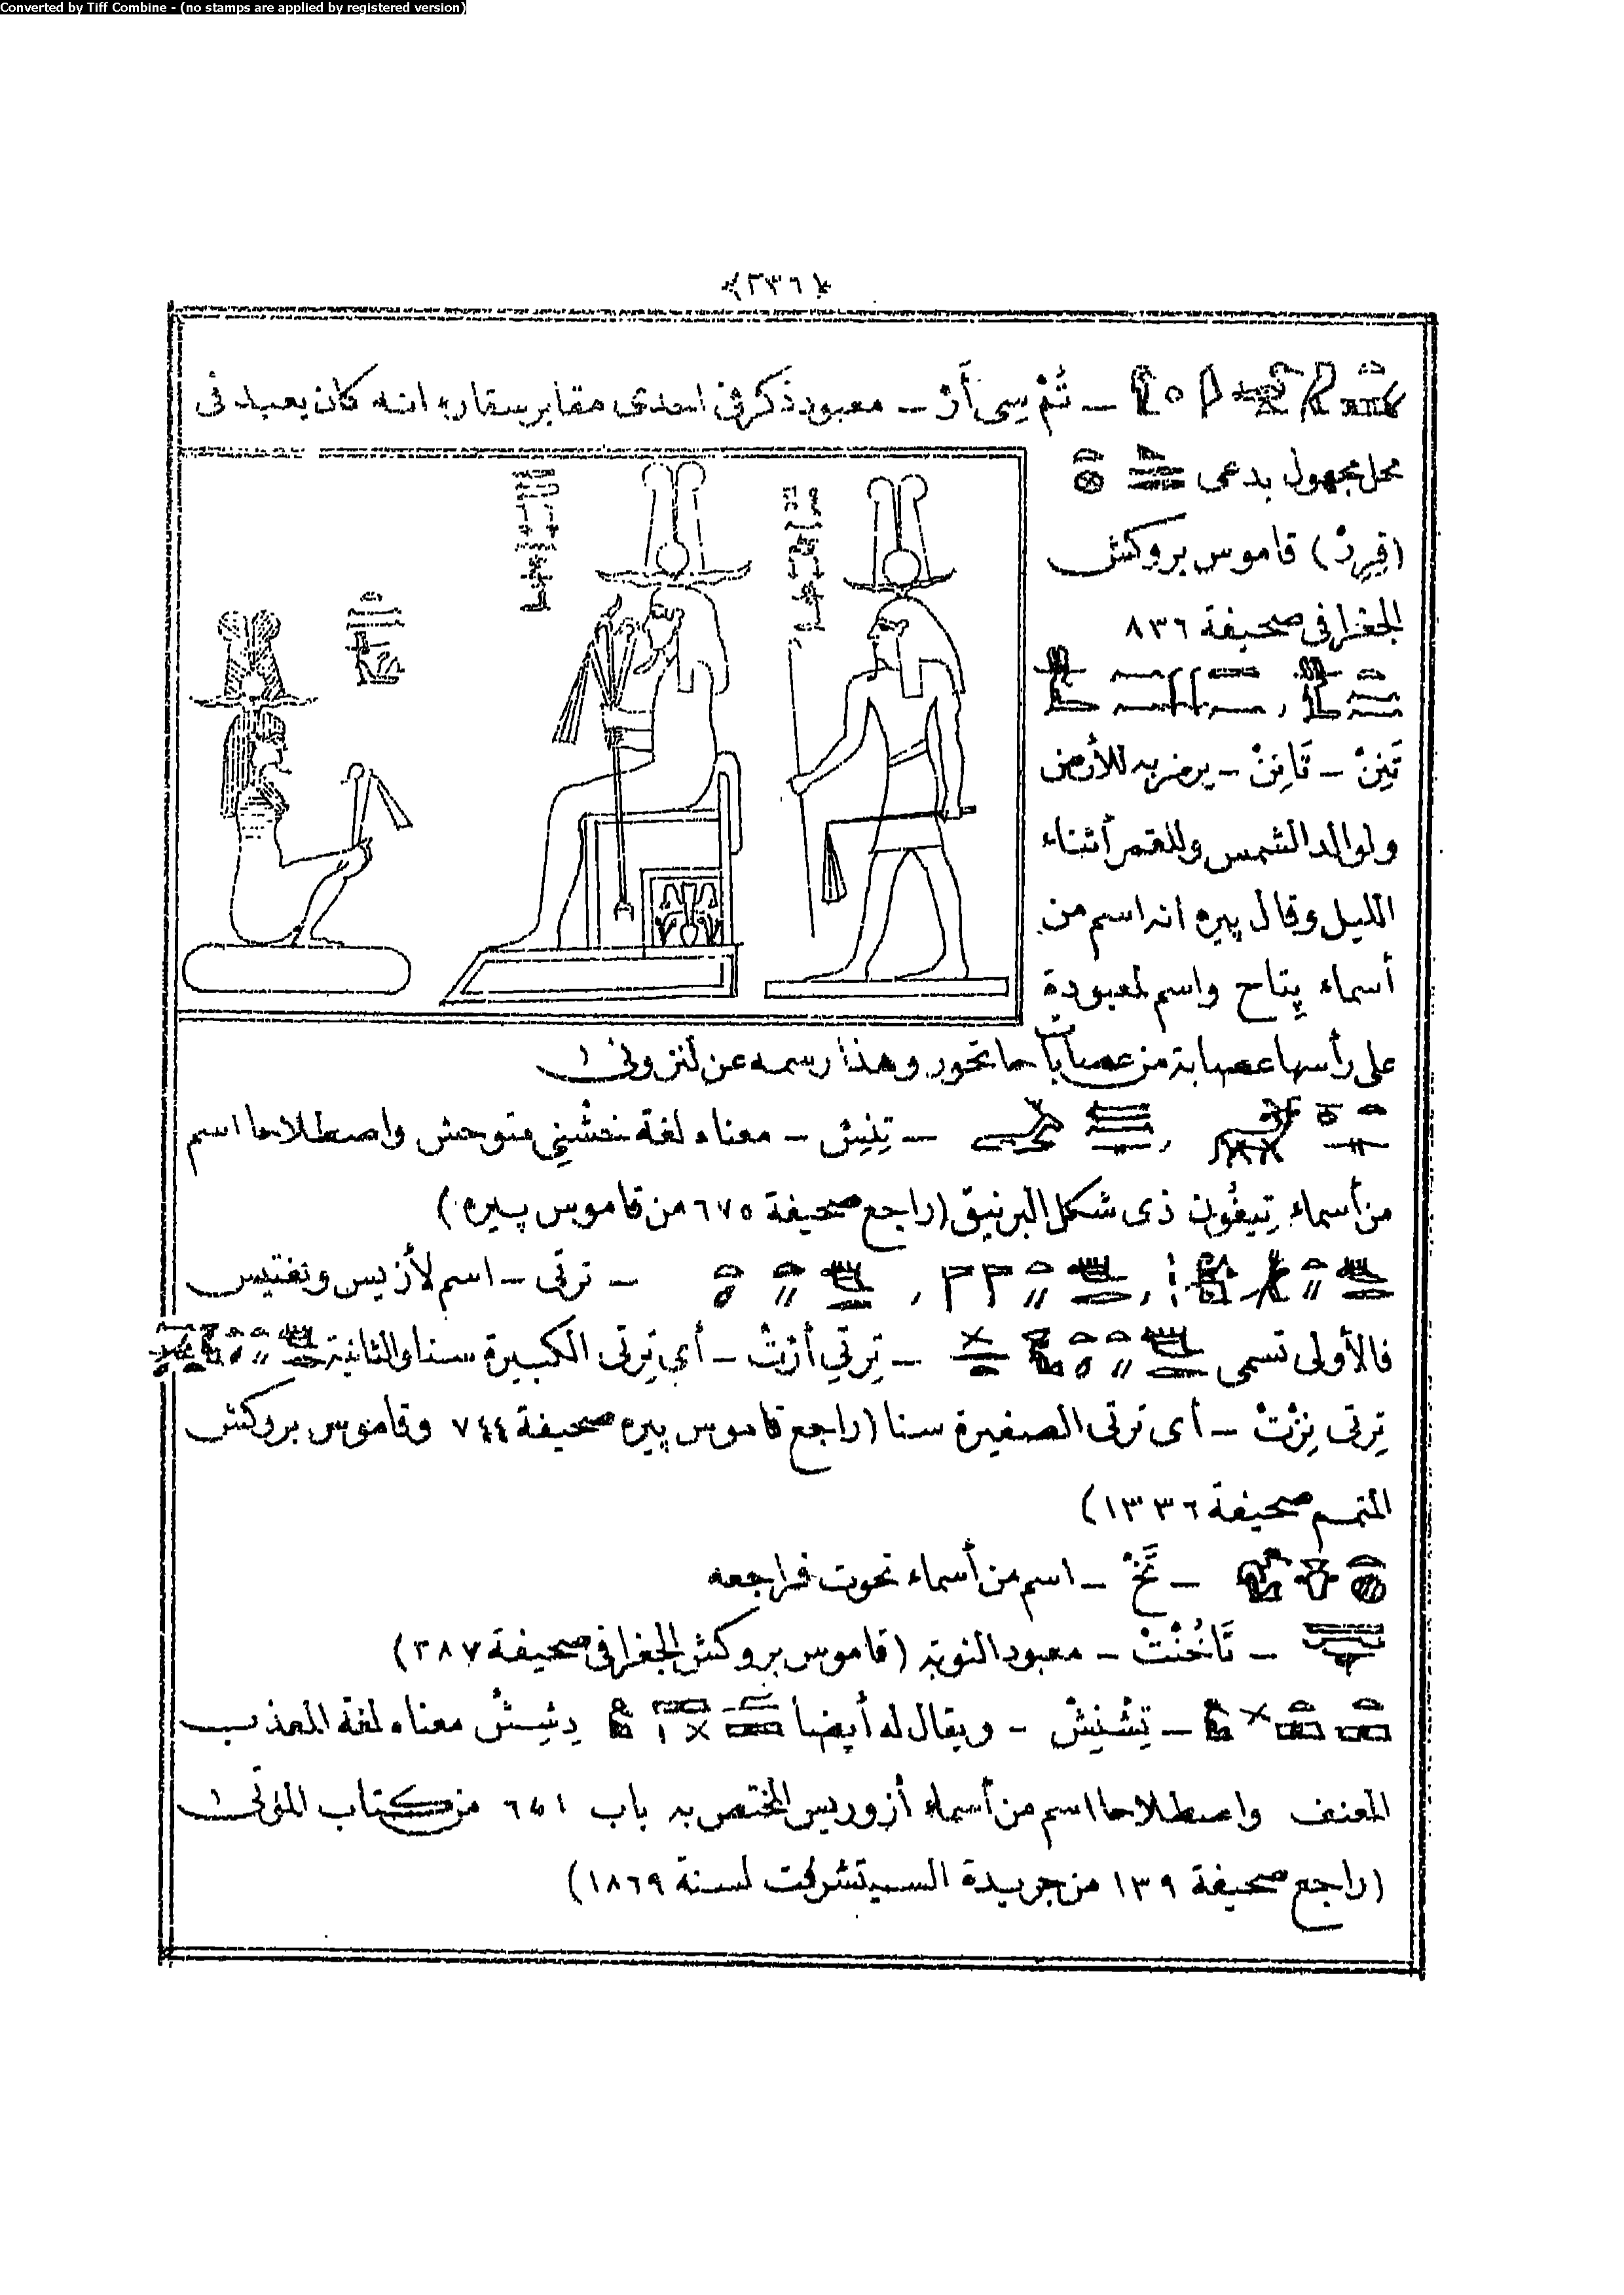 Converted by Tiff Combine - (no stamps are applied by registered version)
﴿٢٣٦﴾
ـ تُمْ سِى أَرْ ـ معبود ذكر فى احدى مقابر سقاره انه كان يعبد فى
محل مجهول يدعى
(قِرِرْ) قاموس بروكش
الجغرافى صحيفة ٨٣٦
تَنِنْ ـ تَانِنْ ـ يرمز به للأرض
ولوالد الشمس وللقمر أثناء
الليل وقال پيره انه اسم من
أسماء پتاح واسم لمعبودة
على رأسها عصابة من عصابات حاتحور وهذا رسمه عن لنزونى
ـ تِنِش ـ معناه لغة متوحش واصطلاحا اسم
من أسماء تِيفُون ذى شكل البرنيق (راجع صحيفة ٦٧٥ من قاموس پيره)
ـ ترتى ـ اسم لأزيس ونفتيس
فالأولى تسمى ـ تِرتِى أَرْتْ ـ أى تِرتى الكبيرة سنا والثانية
تِرتى نِزْتْ ـ أى ترتى الصغيرة سنا (راجع قاموس پيره صحيفة ٧٤٤ وقاموس بروكش
المتمم صحيفة ١٣٣٦)
ـ تَخْ ـ اسم من أسماء تحوت فراجعه
ـ تَاخُنْتْ ـ معبود النوبة (قاموس بروكش الجغرافى صحيفة ٣٨٧)
ـ تِشْتِشْ ـ ويقال له أيضا دِشِشْ معناه لغة المعذب
المعنف واصطلاحا اسم من أسماء أزوريس المختص به باب من كتاب الموتى
(راجع صحيفة ١٣٩ من جريدة السيتشرفت لسنة ١٨٦٩)